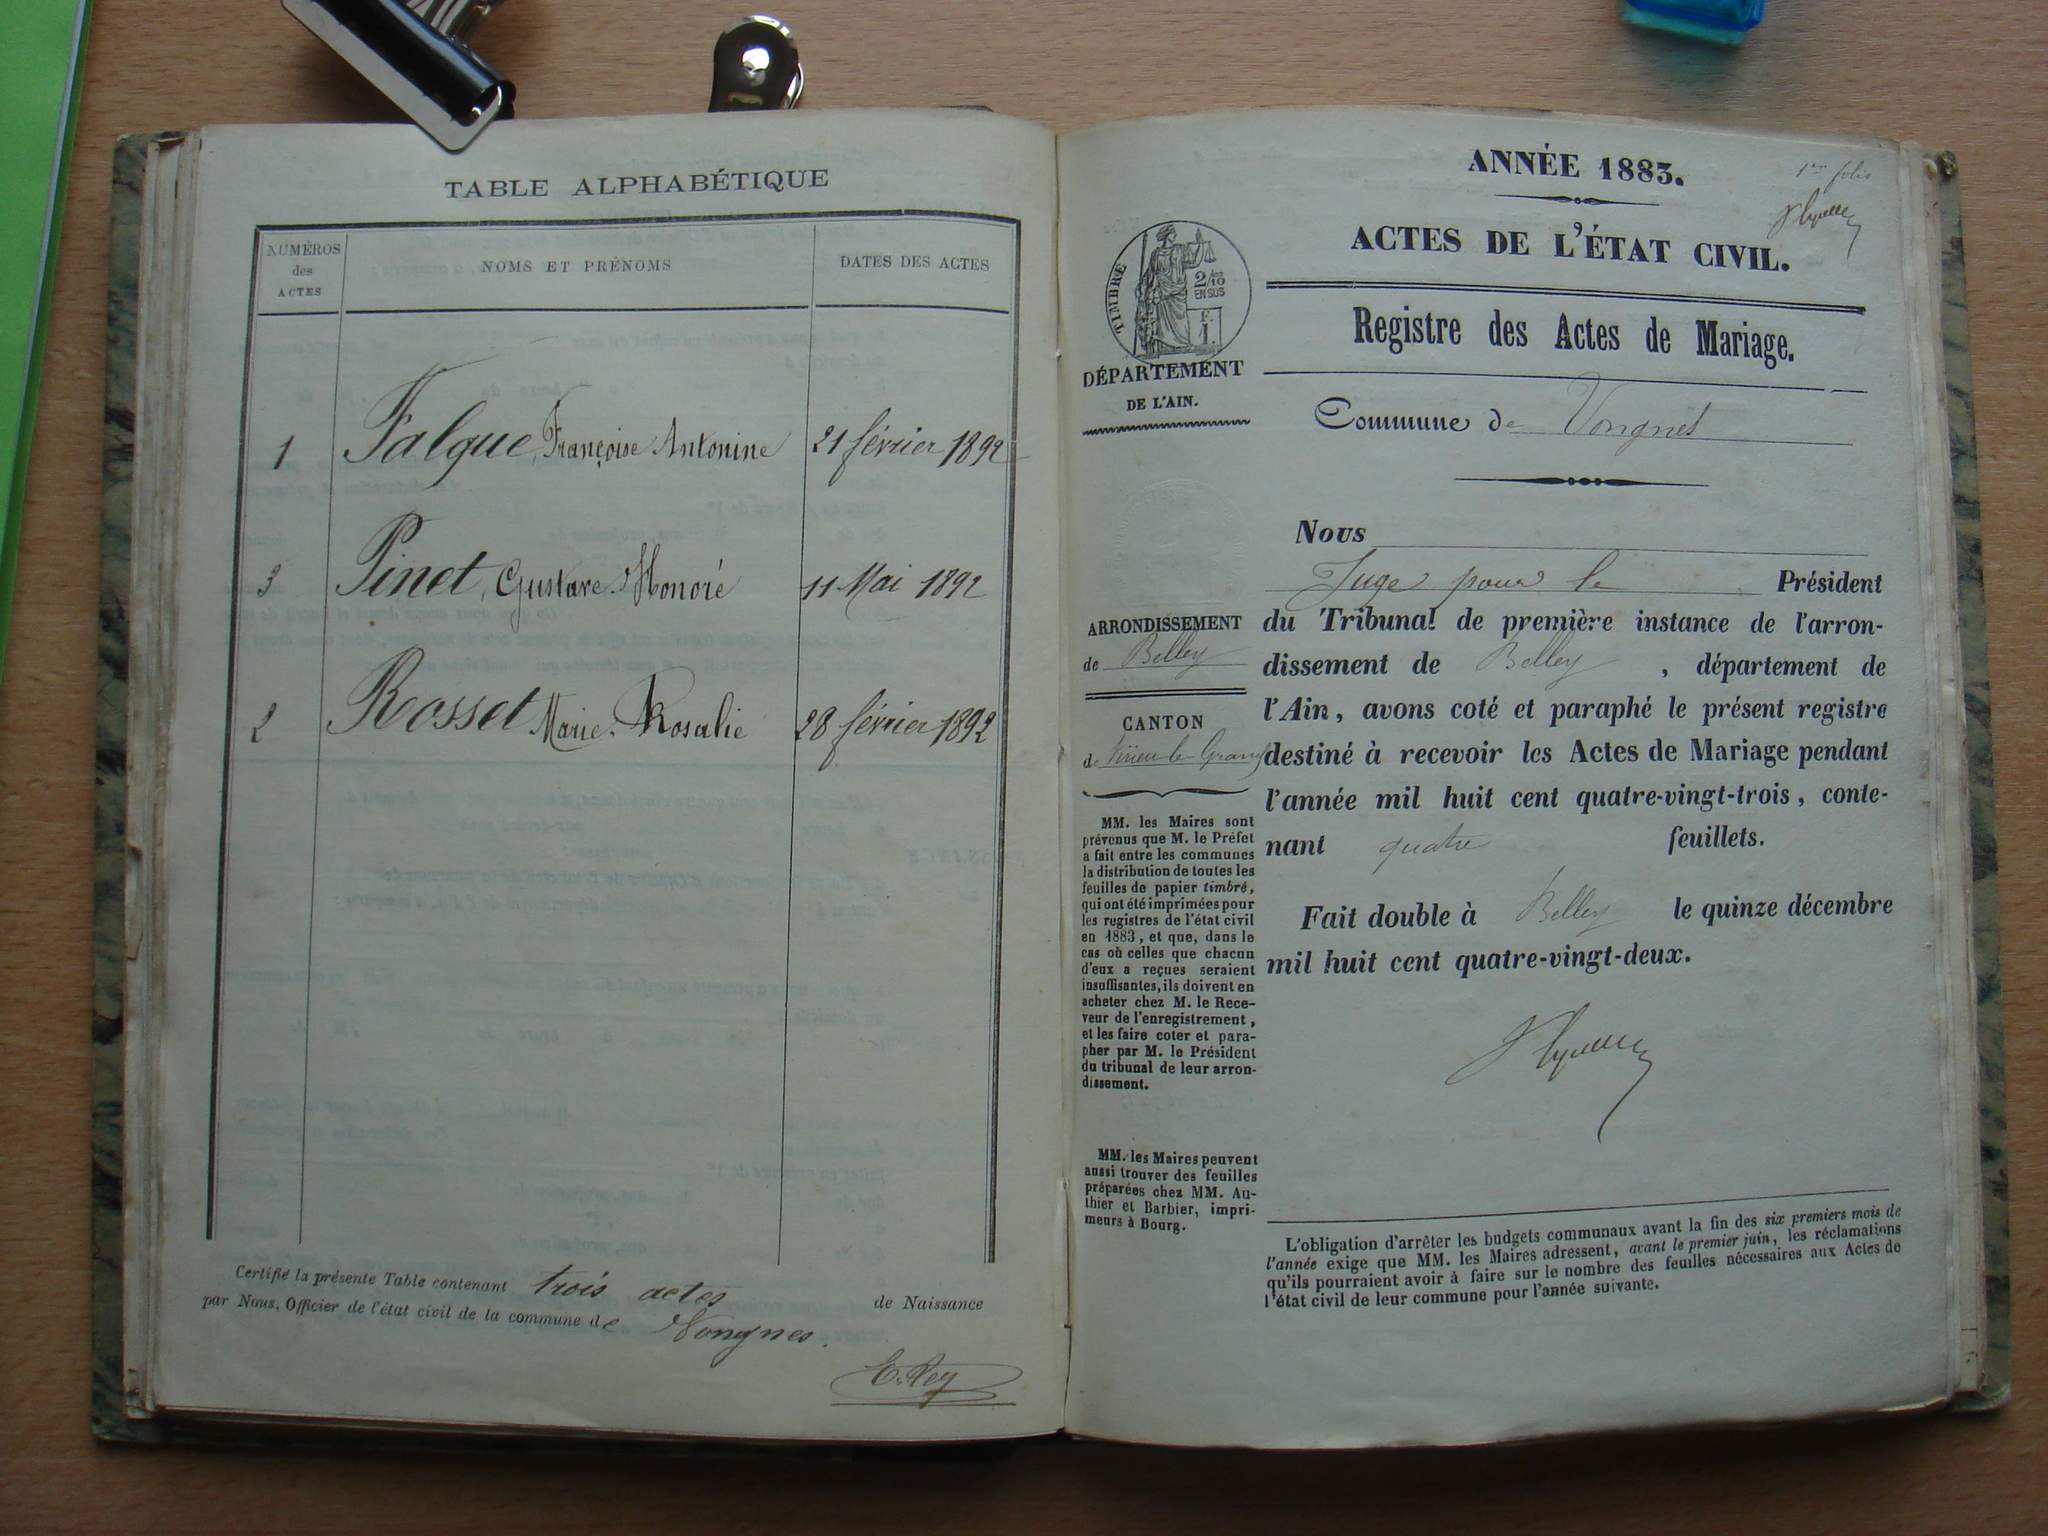 TABLE ALPHABÉTIQUE
NUMÉROS
des
ACTES
NOMS ET PRÉNOMS
DATES DES ACTES
1 Falque, Françoise Antonine 21 février 1892
3 Pinet, Gustave Honoré 11 Mai 1892
2 Rosset Marie Rosalie 28 février 1892
Certifié la présente Table contenant trois actes de Naissance
par Nous, Officier de l'état civil de la commune de Vongnes.
E. Rey
ANNÉE 1883.
ACTES DE L'ÉTAT CIVIL.
Registre des Actes de Mariage.
TIMBRE
2/10
EN SUS
F.
1.
DÉPARTEMENT
DE L'AIN.
Commune de Vongnes
Nous
Juge pour le Président
du Tribunal de première instance de l'arron-
dissement de Belley, département de
l'Ain, avons coté et paraphé le présent registre
destiné à recevoir les Actes de Mariage pendant
l'année mil huit cent quatre-vingt-trois, conte-
nant quatre feuillets.
Fait double à Belley le quinze décembre
mil huit cent quatre-vingt-deux.
ARRONDISSEMENT
de Belley
CANTON
de Virieu-le-Grand
MM. les Maires sont
prévenus que M. le Préfet
a fait entre les communes
la distribution de toutes les
feuilles de papier timbré,
qui ont été imprimées pour
les registres de l'état civil
en 1883, et que, dans le
cas où celles que chacun
d'eux a reçues seraient
insuffisantes, ils doivent en
acheter chez M. le Rece-
veur de l'enregistrement,
et les faire coter et para-
pher par M. le Président
du tribunal de leur arron-
dissement.
MM. les Maires peuvent
aussi trouver des feuilles
préparées chez MM. Au-
thier et Barbier, impri-
meurs à Bourg.
L'obligation d'arrêter les budgets communaux avant la fin des six premiers mois de
l'année exige que MM. les Maires adressent, avant le premier juin, les réclamations
qu'ils pourraient avoir à faire sur le nombre des feuilles nécessaires aux Actes de
l'état civil de leur commune pour l'année suivante.